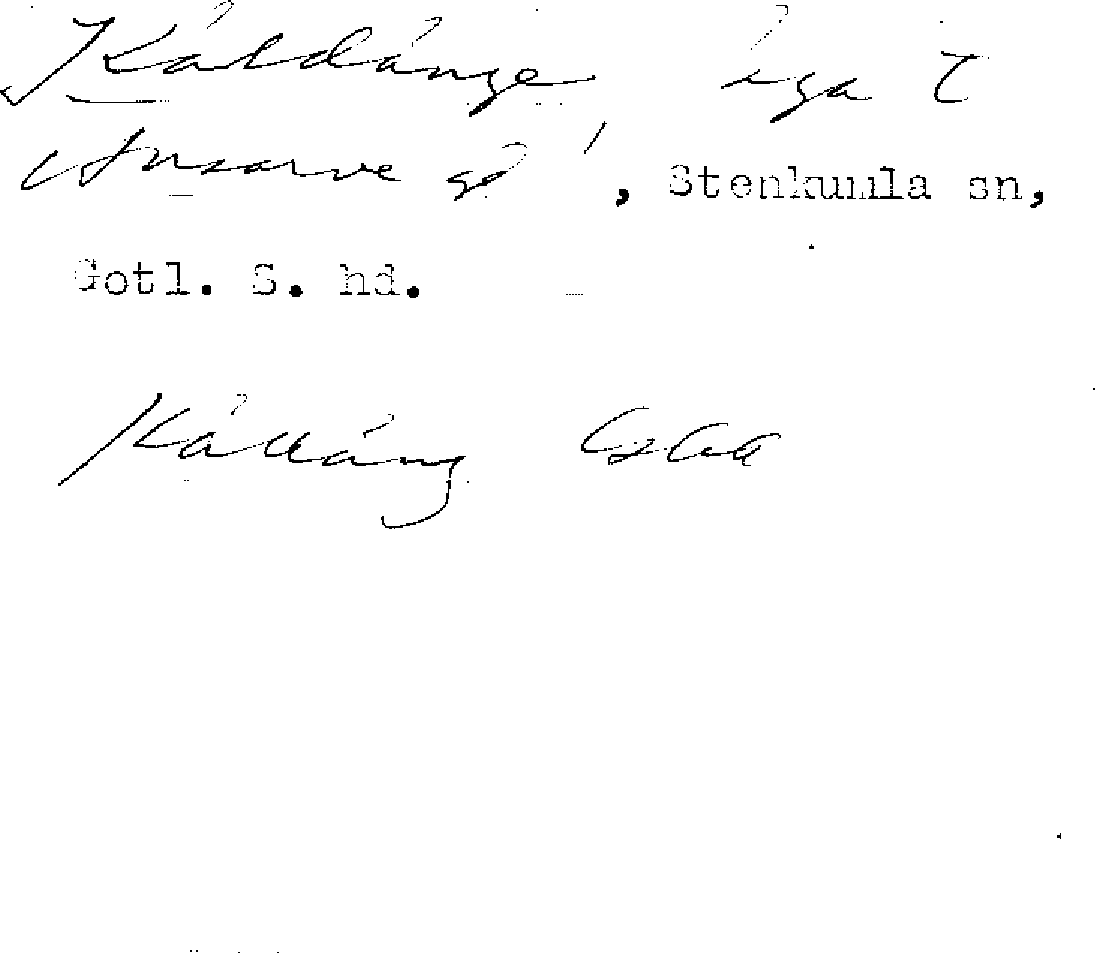 Käldänge äga t
Ansarve gd, Stenkumla sn,
Gotl. S. hd.
Källäng